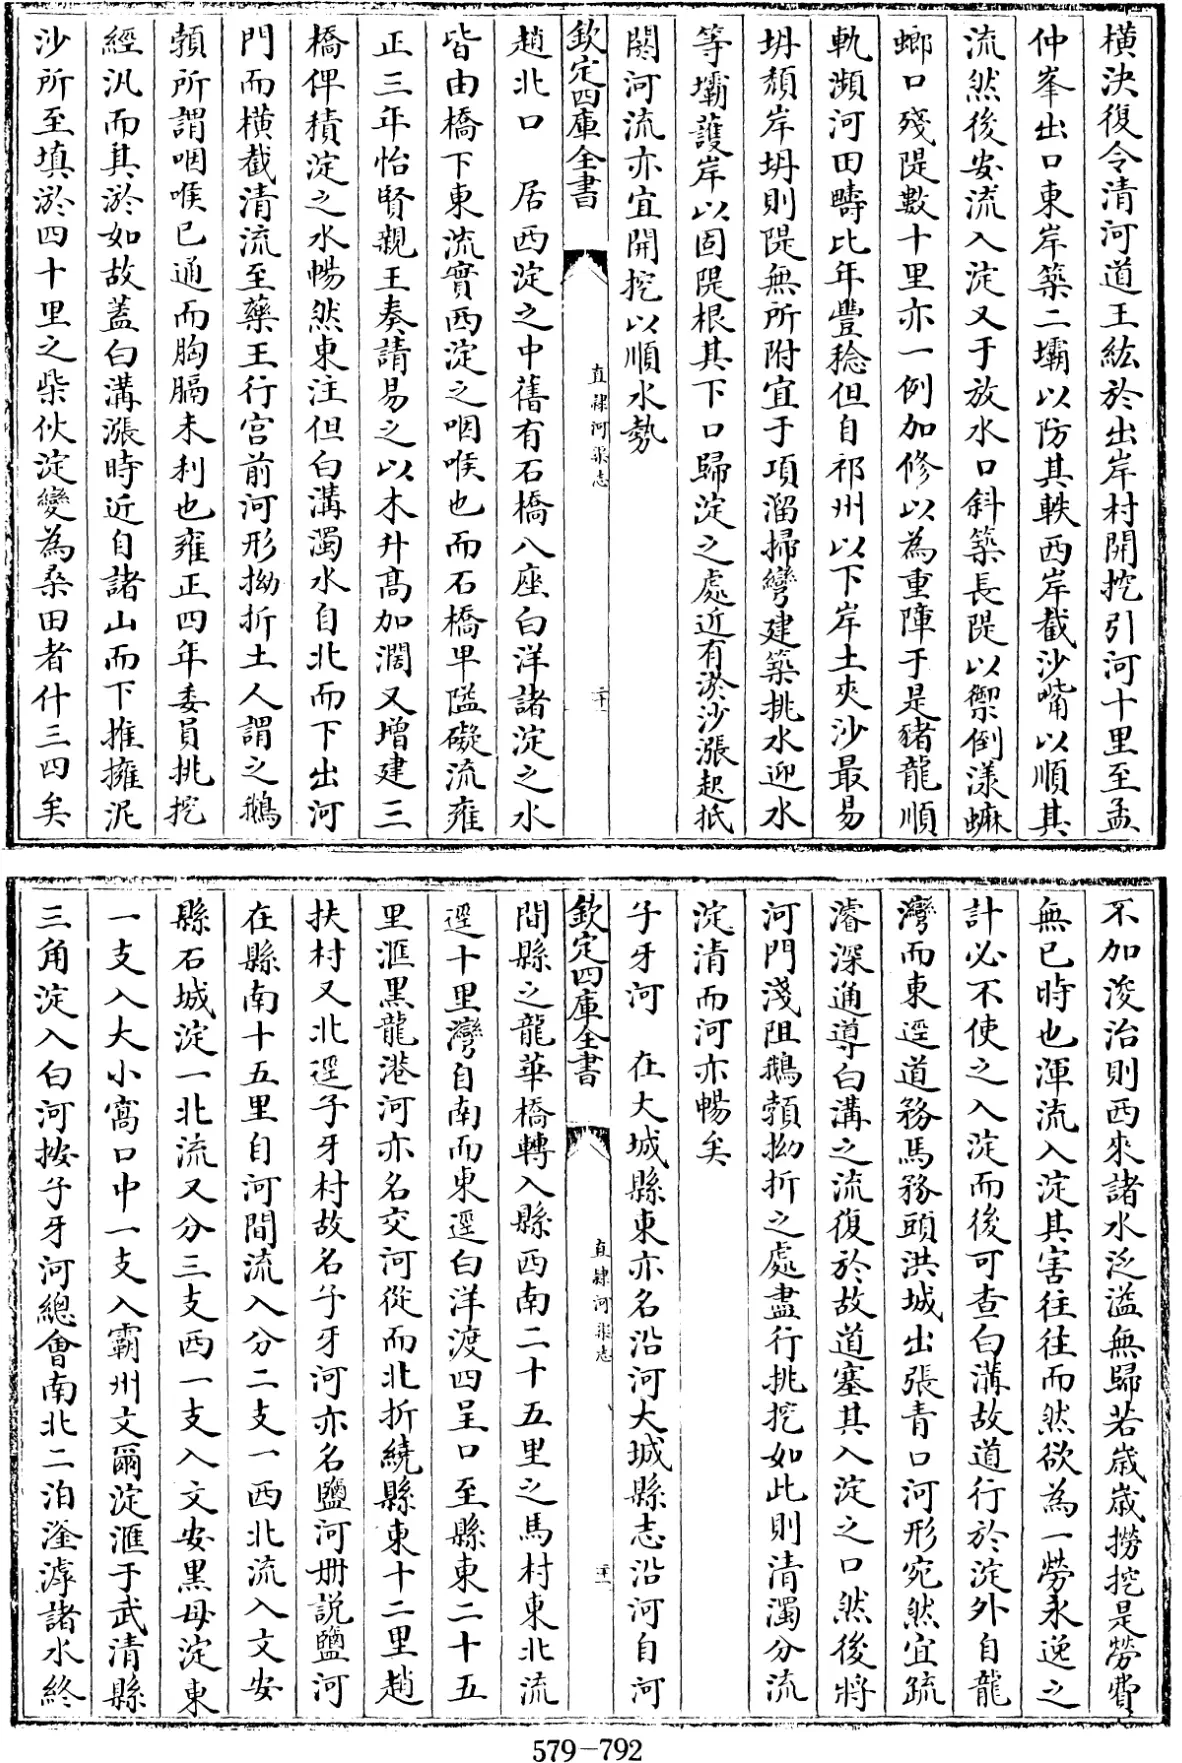 橫決復令清河道王紘於出岸村開挖引河十里至孟
仲峯出口東岸築二壩以防其軼西岸截沙嘴以順其
流然後安流入淀又于放水口斜築長隄以禦倒漾蜥
螂口殘隄數十里亦一例加修以為重障于是豬龍順
軌瀕河田疇比年豐稔但自祁州以下岸土夾沙最易
坍頹岸坍則隄無所附宜于項溜掃彎建築挑水迎水
等壩護岸以固隄根其下口歸淀之處近有淤沙漲起抵
閼河流亦宜開挖以順水勢
欽定四庫全書
直隸河渠志
二十
趙北口　居西淀之中舊有石橋八座白洋諸淀之水
皆由橋下東流實西淀之咽喉也而石橋卑隘礙流雍
正三年怡賢親王奏請易之以木升高加濶又增建三
橋俾積淀之水暢然東注但白溝濁水自北而下出河
門而橫截清流至藥王行宫前河形拗折土人謂之鵝
頸所謂咽喉已通而胸膈未利也雍正四年委員挑挖
經汎而其淤如故蓋白溝漲時近自諸山而下推擁泥
沙所至填淤四十里之柴伙淀變為桑田者什三四矣
不加浚治則西來諸水泛溢無歸若歳歳撈挖是勞費
無已時也渾流入淀其害往往而然欲為一勞永逸之
計必不使之入淀而後可查白溝故道行於淀外自龍
灣而東逕道務馬務頭洪城出張青口河形宛然宜疏
濬深通導白溝之流復於故道塞其入淀之口然後將
河門淺阻鵝頸拗折之處盡行挑挖如此則清濁分流
淀清而河亦暢矣
子牙河　在大城縣東亦名沿河大城縣志沿河自河
欽定四庫全書
直隸河渠志
二十一
間縣之龍華橋轉入縣西南二十五里之馬村東北流
逕十里灣自南而東逕白洋渡四呈口至縣東二十五
里滙黑龍港河亦名交河從而北折繞縣東十二里趙
扶村又北逕子牙村故名子牙河亦名鹽河册説鹽河
在縣南十五里自河間流入分二支一西北流入文安
縣石城淀一北流又分三支西一支入文安黑母淀東
一支入大小窩口中一支入霸州文爾淀滙于武清縣
三角淀入白河按子牙河總會南北二泊滏滹諸水終
579-792